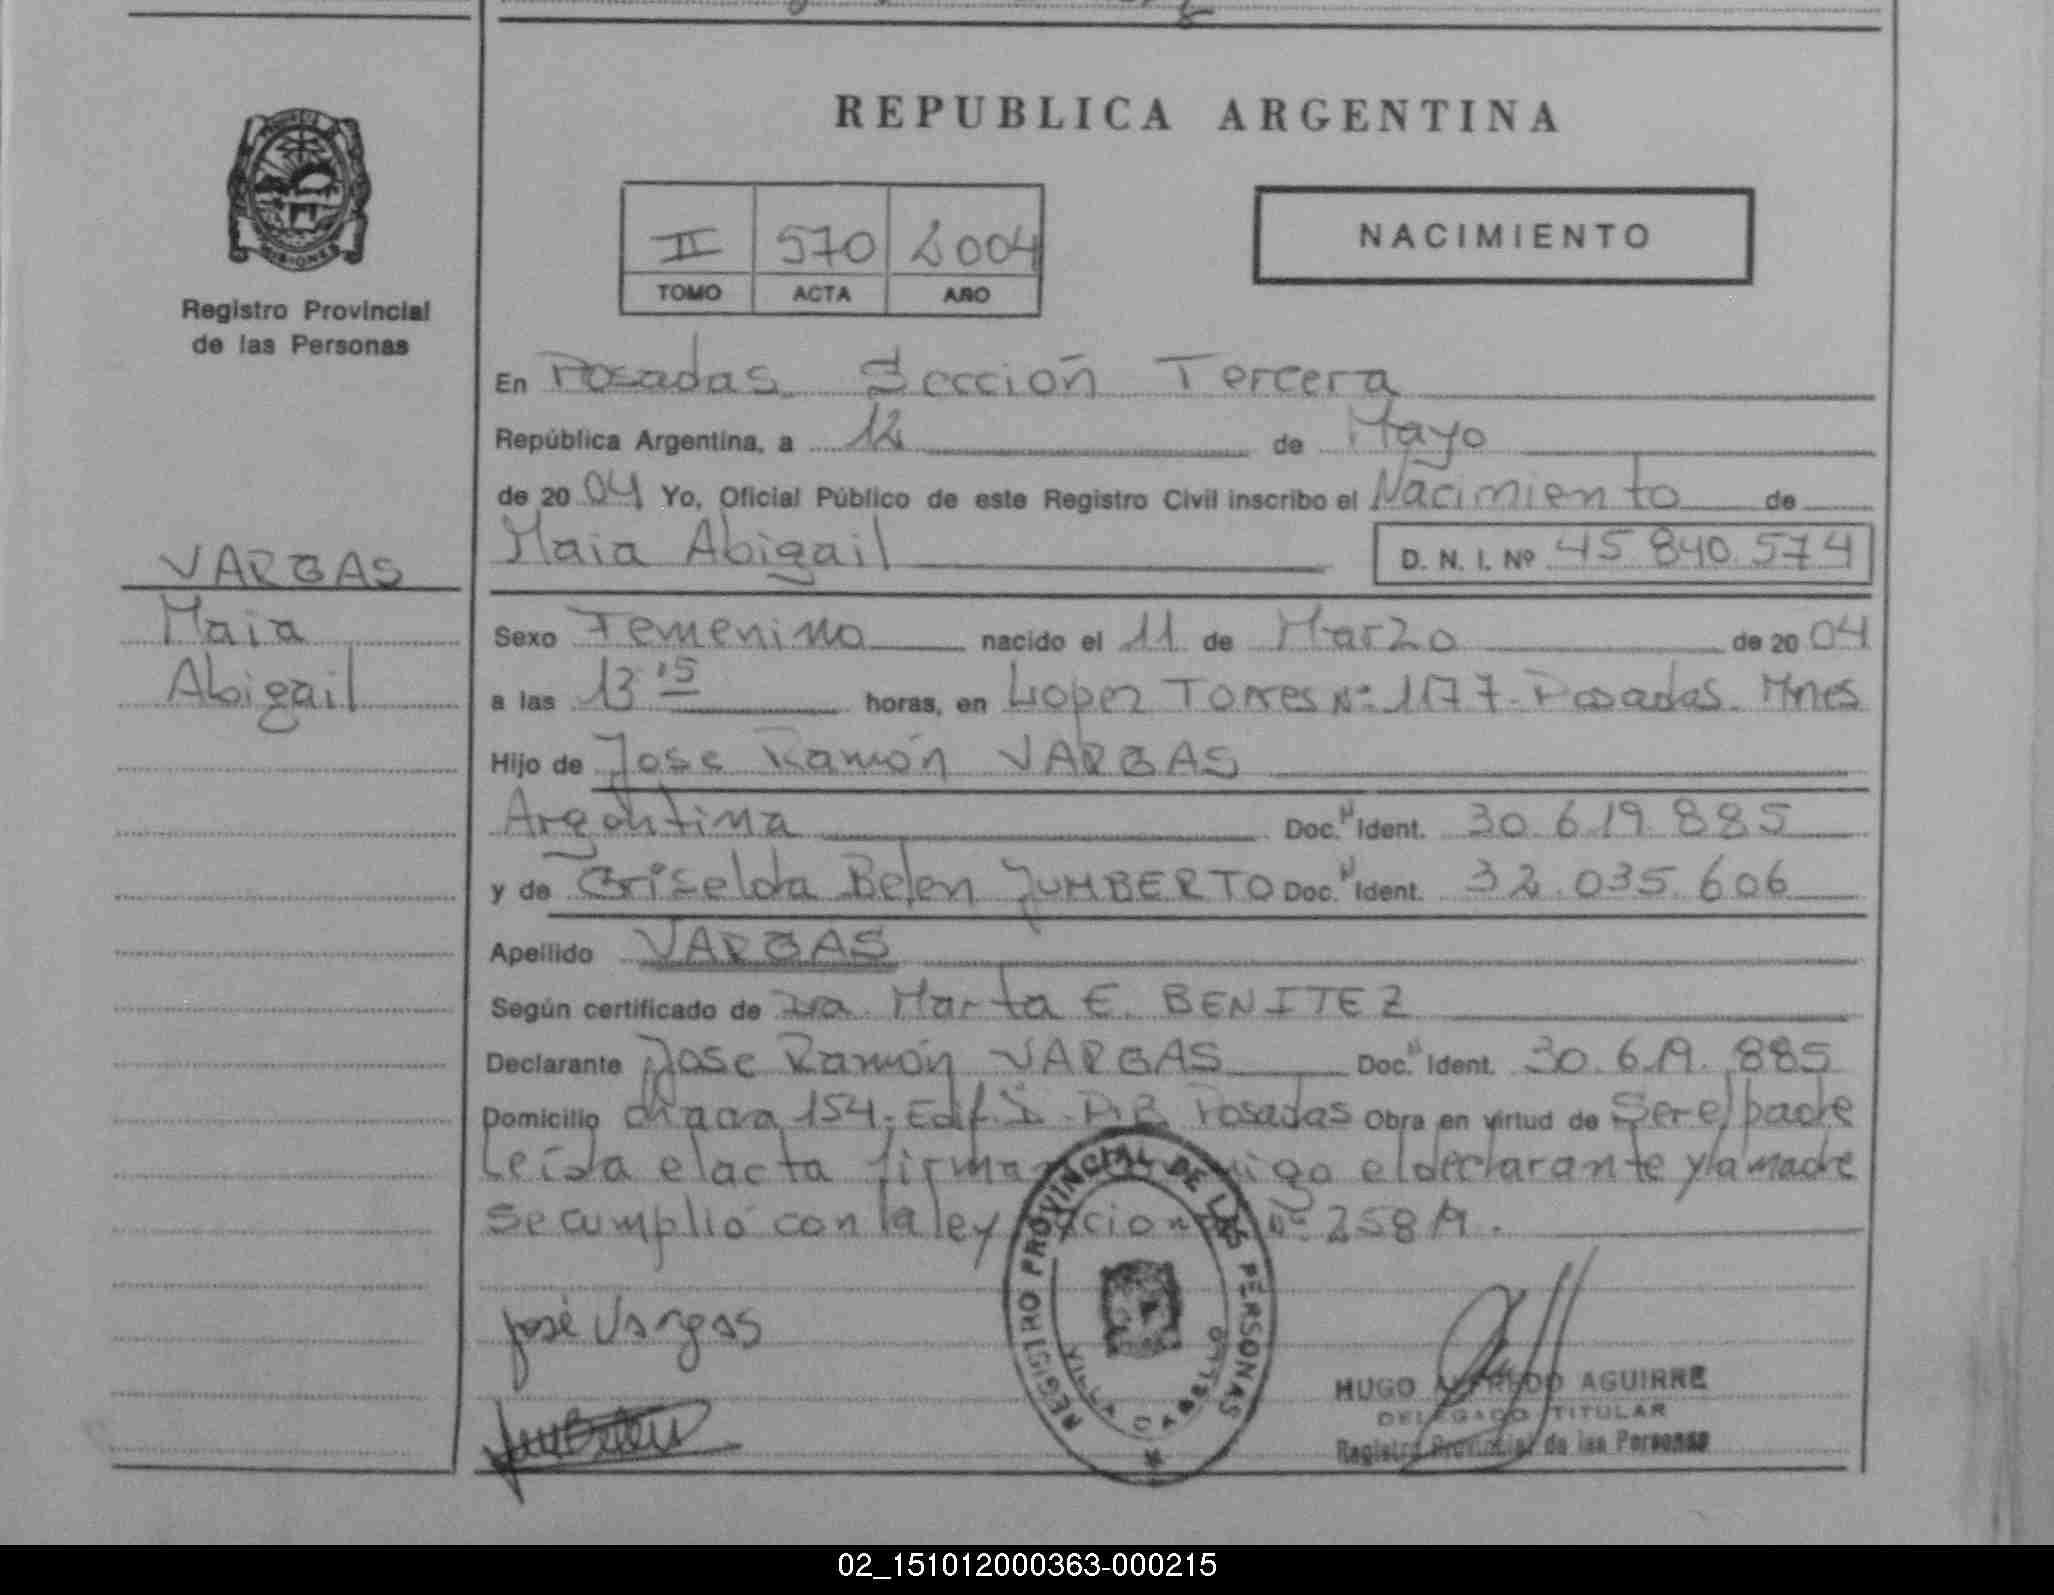 REPUBLICA ARGENTINA
MISIONES
Registro Provincial
de las Personas
II 570 2004
TOMO ACTA AÑO
NACIMIENTO
En Posadas Sección Tercera
República Argentina, a 12 de Mayo
de 2004 Yo, Oficial Público de este Registro Civil inscribo el Nacimiento de
Maia Abigail D. N. I. Nº 45.840.574
VARGAS
Maia
Abigail
Sexo Femenino nacido el 11 de Marzo de 2004
a las 13 15 horas, en Lopez Torres Nº 1177 - Posadas. Mnes
Hijo de Jose Ramón VARGAS
Argentina Doc. N Ident. 30.619.885
y de Griselda Belen JUMBERTO Doc. N Ident. 32.035.606
Apellido VARGAS
Según certificado de Dra. Marta E. BENITEZ
Declarante Jose Ramón VARGAS Doc. N Ident. 30.619.885
Domicilio chacra 154 - Edif. I - Posadas Obra en virtud de Ser el padre
Leída el acta el declarante y la madre
Se cumplió con la ley Nº 25819.
José Vargas
REGISTRO PROVINCIAL DE LAS PERSONAS
VILLA CABELLO
HUGO ALFREDO AGUIRRE
DELEGADO TITULAR
Registro Provincial de las Personas
02_151012000363-000215